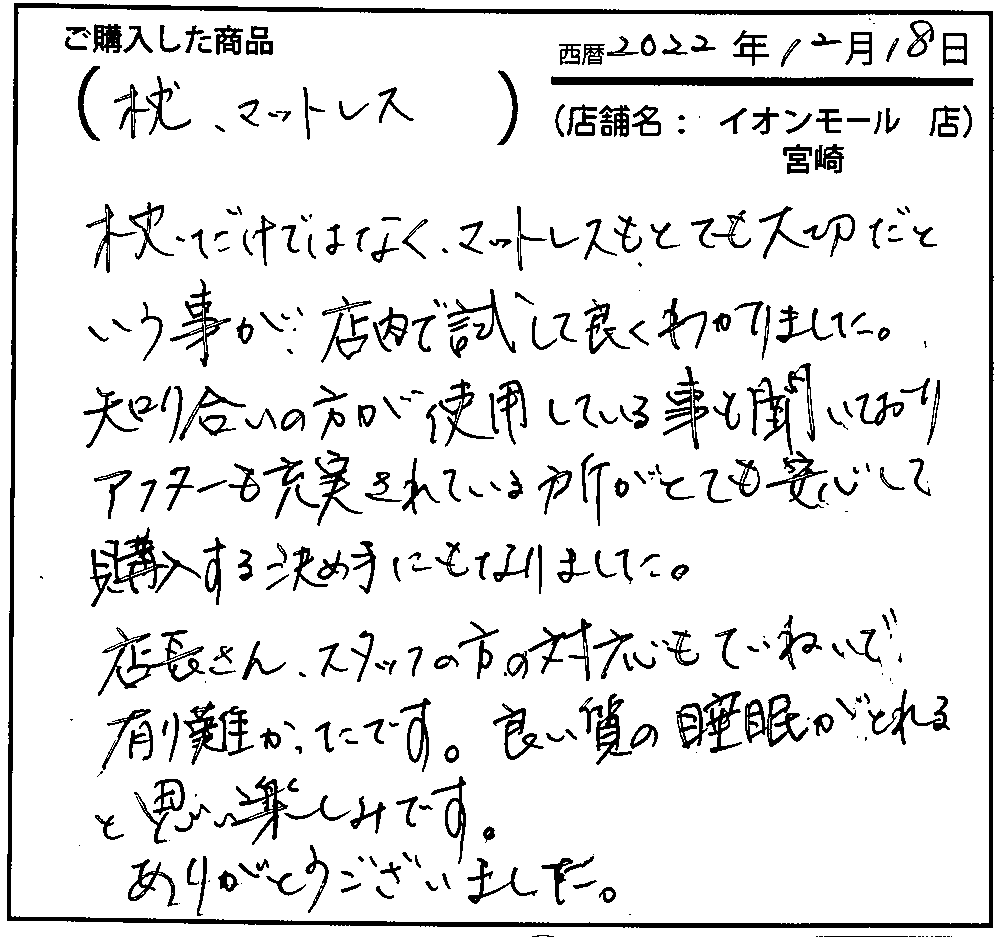 ご購入した商品
西暦2022年12月18日
(枕、マットレス)
(店舗名: イオンモール 店)
宮崎
枕だけではなく、マットレスもとても大切だと
いう事が、店内で試して良くわかりました。
知り合いの方が使用している事も聞いており
アフターも充実されている所がとても安心して
購入する決め手にもなりました。
店長さん、スタッフの方の対応もていねいで
有り難かったです。良い質の睡眠がとれる
と思い楽しみです。
ありがとうございました。